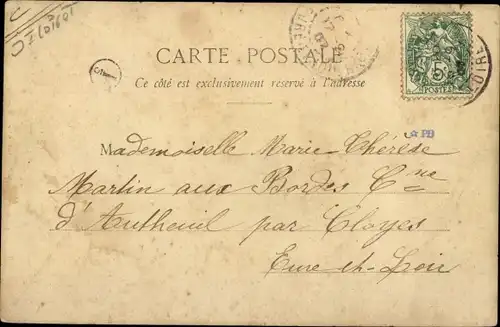 CARTE POSTALE
Ce côté est exclusivement réservé à l'adresse
5
POSTES
PD
Mademoiselle Marie-Thérèse
Martin aux Bordes Cne
d'Autheuil par Cloyes
Eure-et-Loir